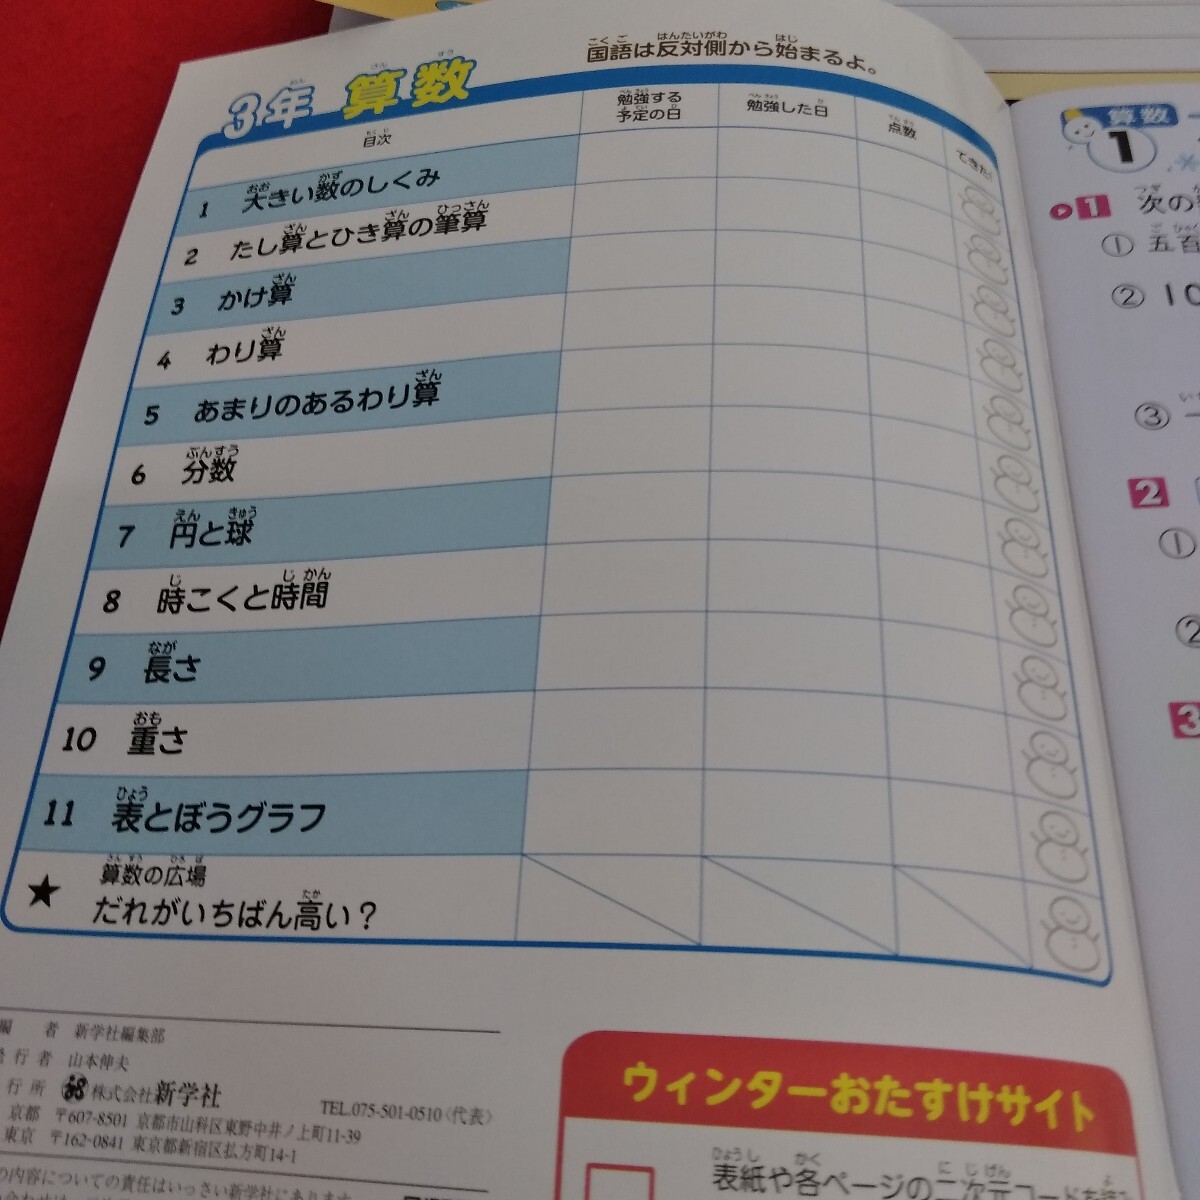 3年 算数
国語は反対側から始まるよ。
目次
勉強する
予定の日
勉強した日
点数
できた!
1 大きい数のしくみ
2 たし算とひき算の筆算
3 かけ算
4 わり算
5 あまりのあるわり算
6 分数
7 円と球
8 時こくと時間
9 長さ
10 重さ
11 表とぼうグラフ
★ 算数の広場
だれがいちばん高い？
者 新学社編集部
行者 山本伸夫
行所 株式会社新学社
TEL.075-501-0510〈代表〉
京都 〒607-8501 京都市山科区東野中井ノ上町11-39
東京 〒162-0841 東京都新宿区払方町14-1
の内容についての責任はいっさい新学社にあります
ウィンターおたすけサイト
表紙や各ページの二次元コード
算数
1
1 次の
① 五百
② 10
③
2
①
②
3